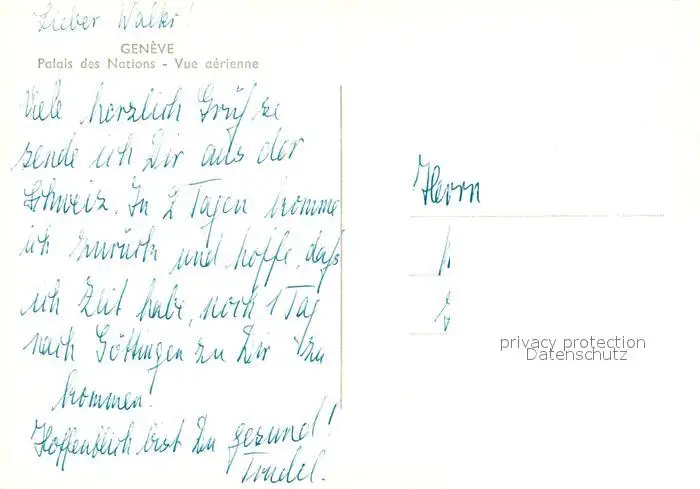 Lieber Walter!
GENÈVE
Palais des Nations - Vue aérienne
Viele herzlich Grüße
sende ich Dir aus der
Schweiz. In 2 Tagen komme
ich zurück und hoffe, daß
ich Zeit habe, noch 1 Tag
nach Göttingen zu Dir zu
kommen!
Hoffentlich bist Du gesund!
Trudel.
Herrn
privacy protection
Datenschutz